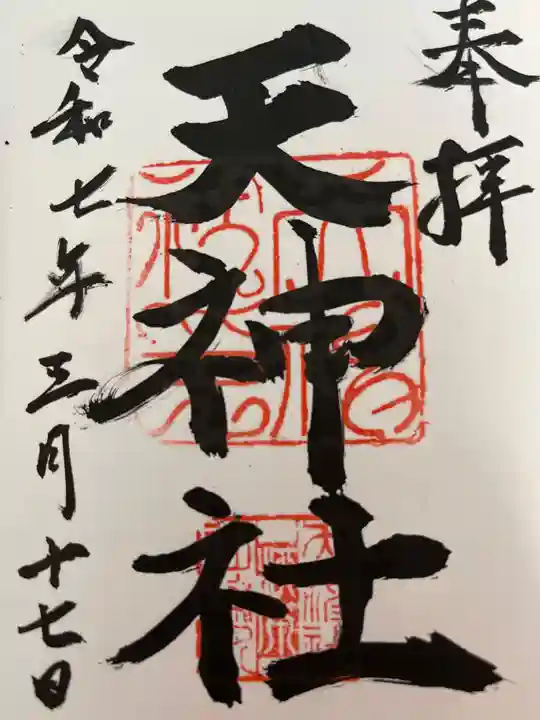 奉拝
天神社
令和七年三月十七日